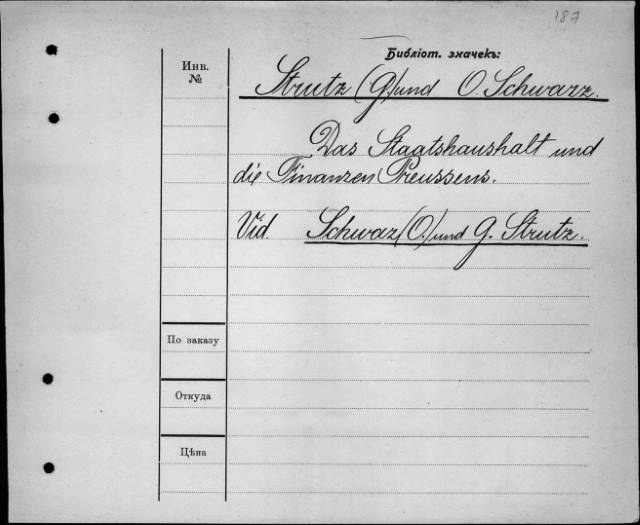 187
Библіот. значекъ:
Инв.
№
Strutz (G.) und O. Schwarz.
Das Staatshaushalt und
die Finanzen Preussens.
Vid. Schwaz (O.) und G. Strutz.
По заказу
Откуда
Цѣна